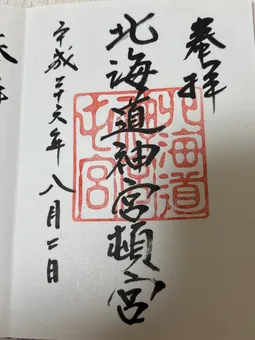 奉拝
北海道神宮頓宮
北海道
平成二十六年八月二日